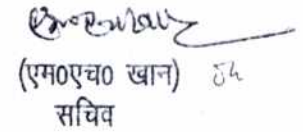 (एम0एच0 खान)
सचिव